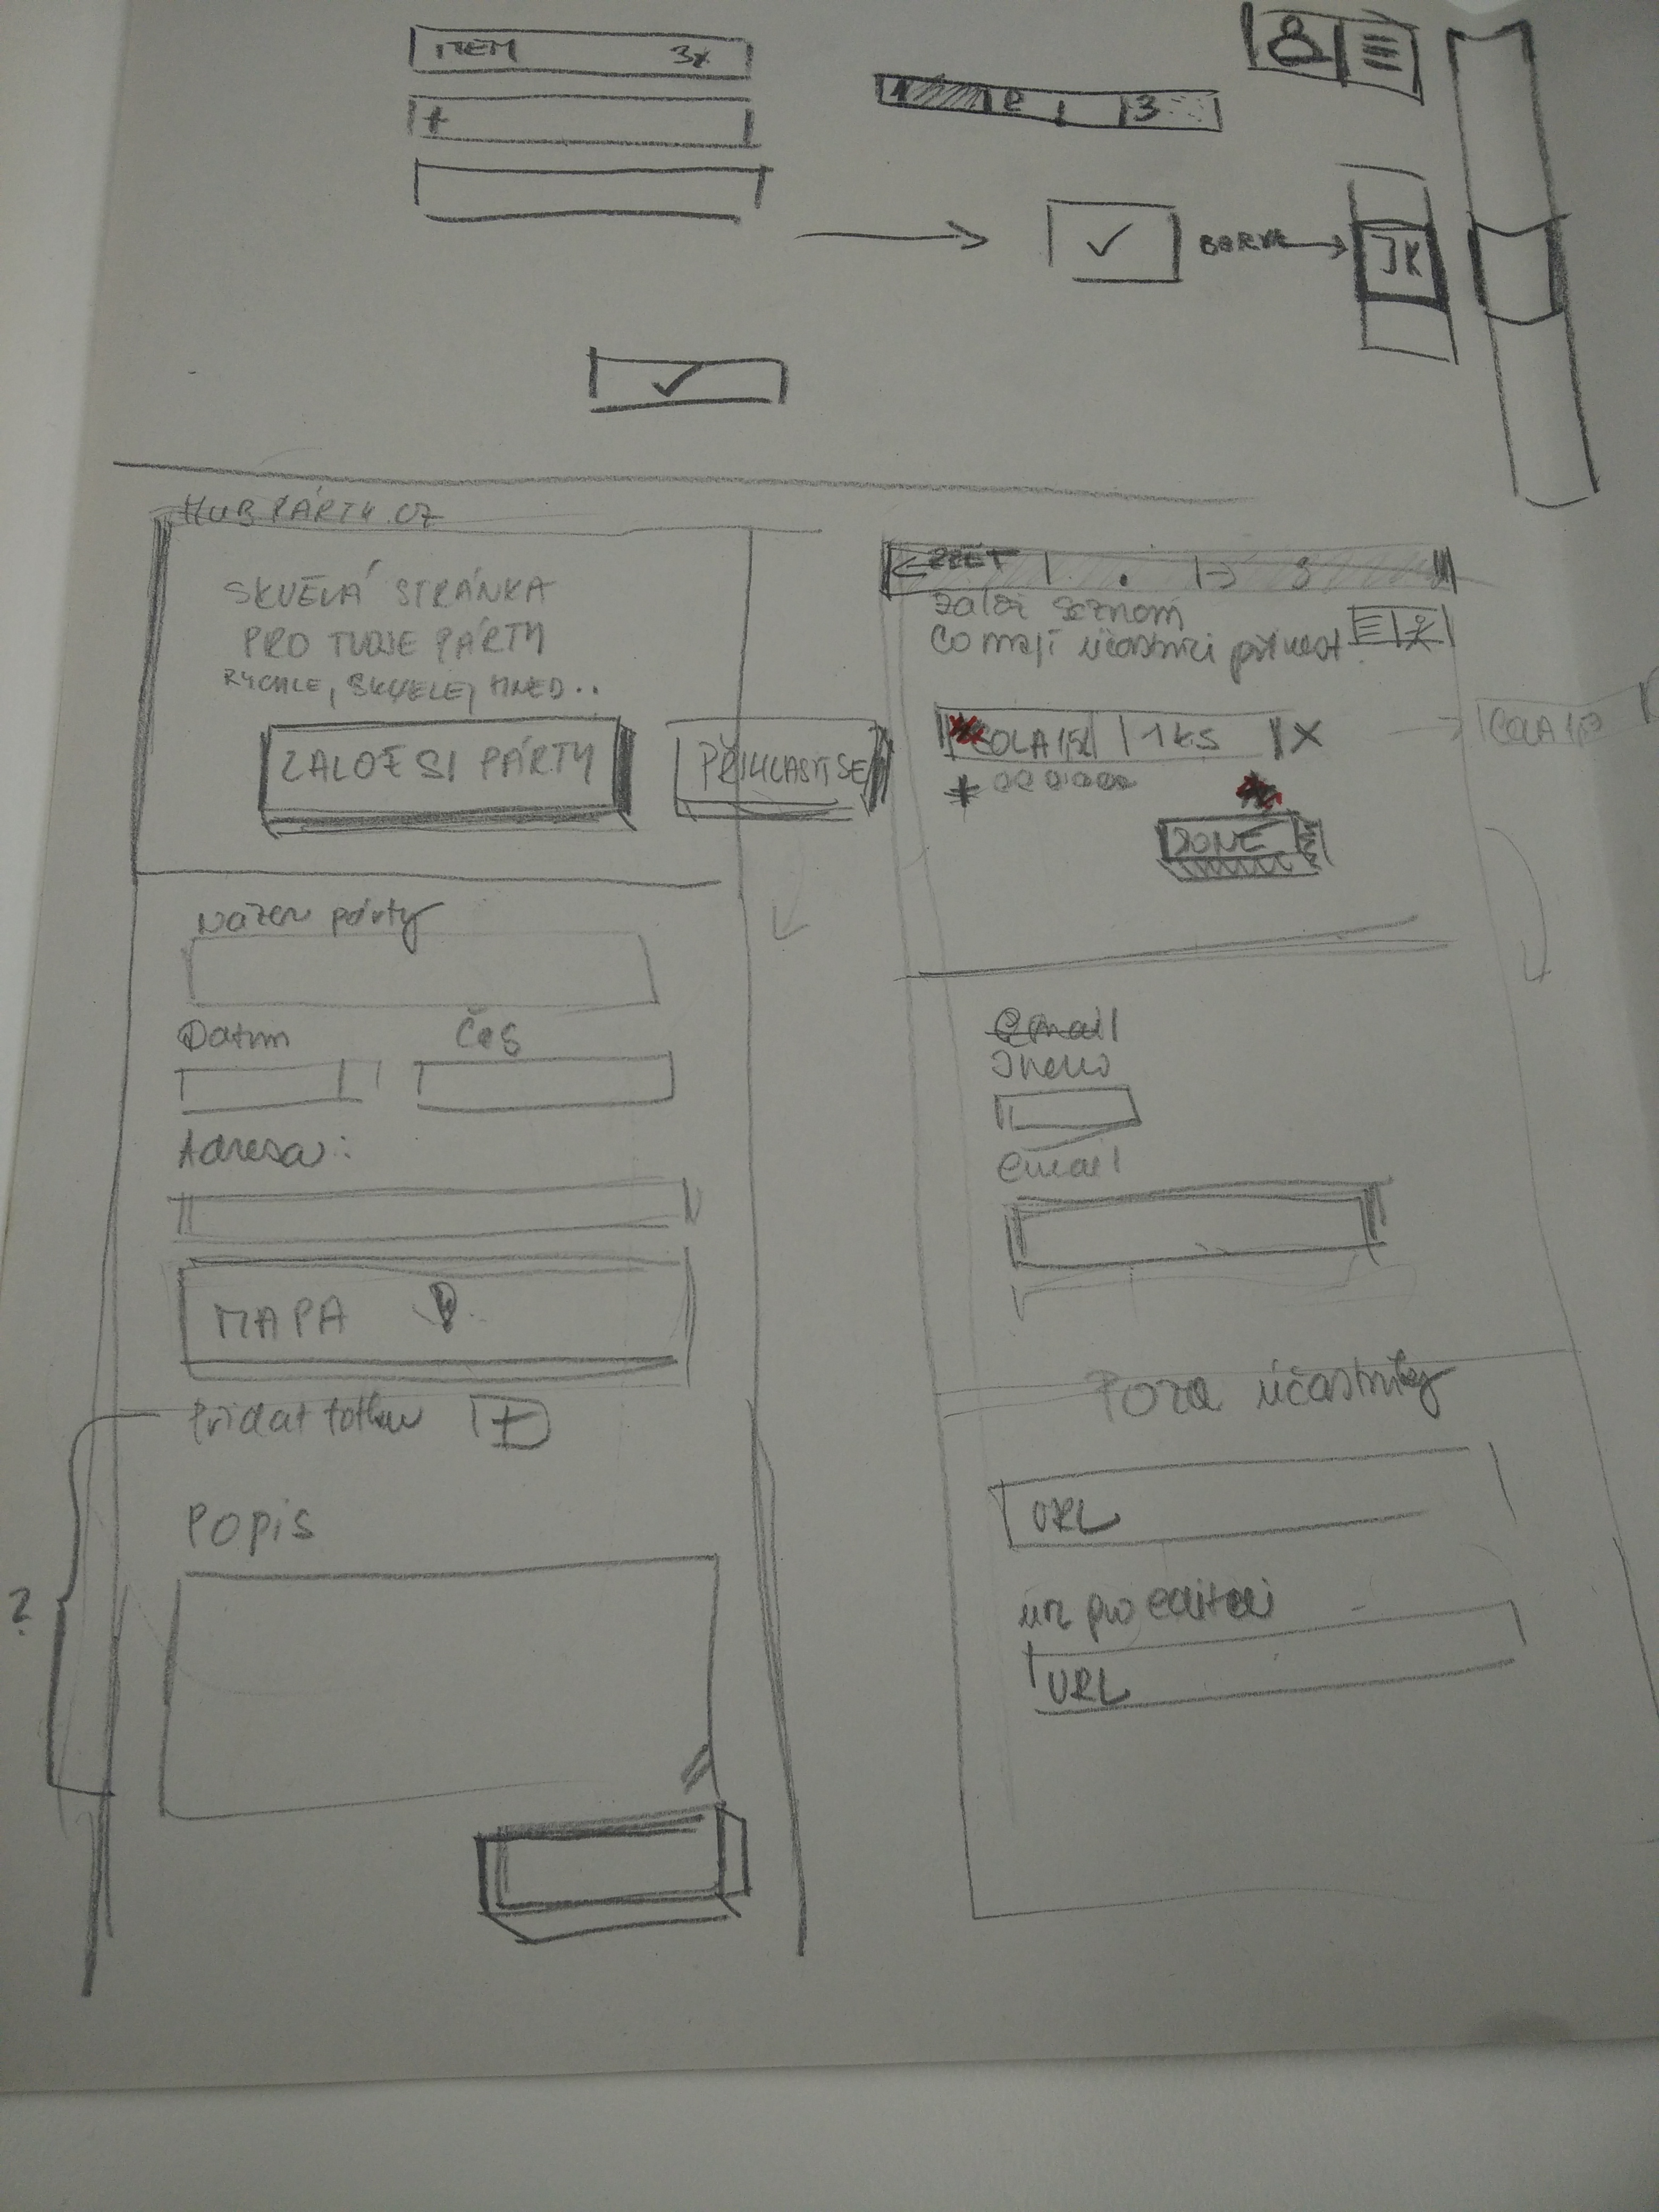 ITEM 3x
+
1 2 3
BERE
JK
HUBPÁRTY.CZ
SKVĚLÁ STRÁNKA
PRO TVOJE PÁRTY
RYCHLE, SKVELE, HNED..
ZALOŽ SI PÁRTY
PŘIHLASIT SE
Název párty
Datum Čas
Adresa:
MAPA
Přidat fotku +
Popis
?
← ZPĚT 3
Založ seznam
co mají účastníci přinest
COLA 1,5l 1 KS X
COLA 1,5
DONE
email
Jméno
email
Pozvi účastníky
URL
url pro editaci
URL